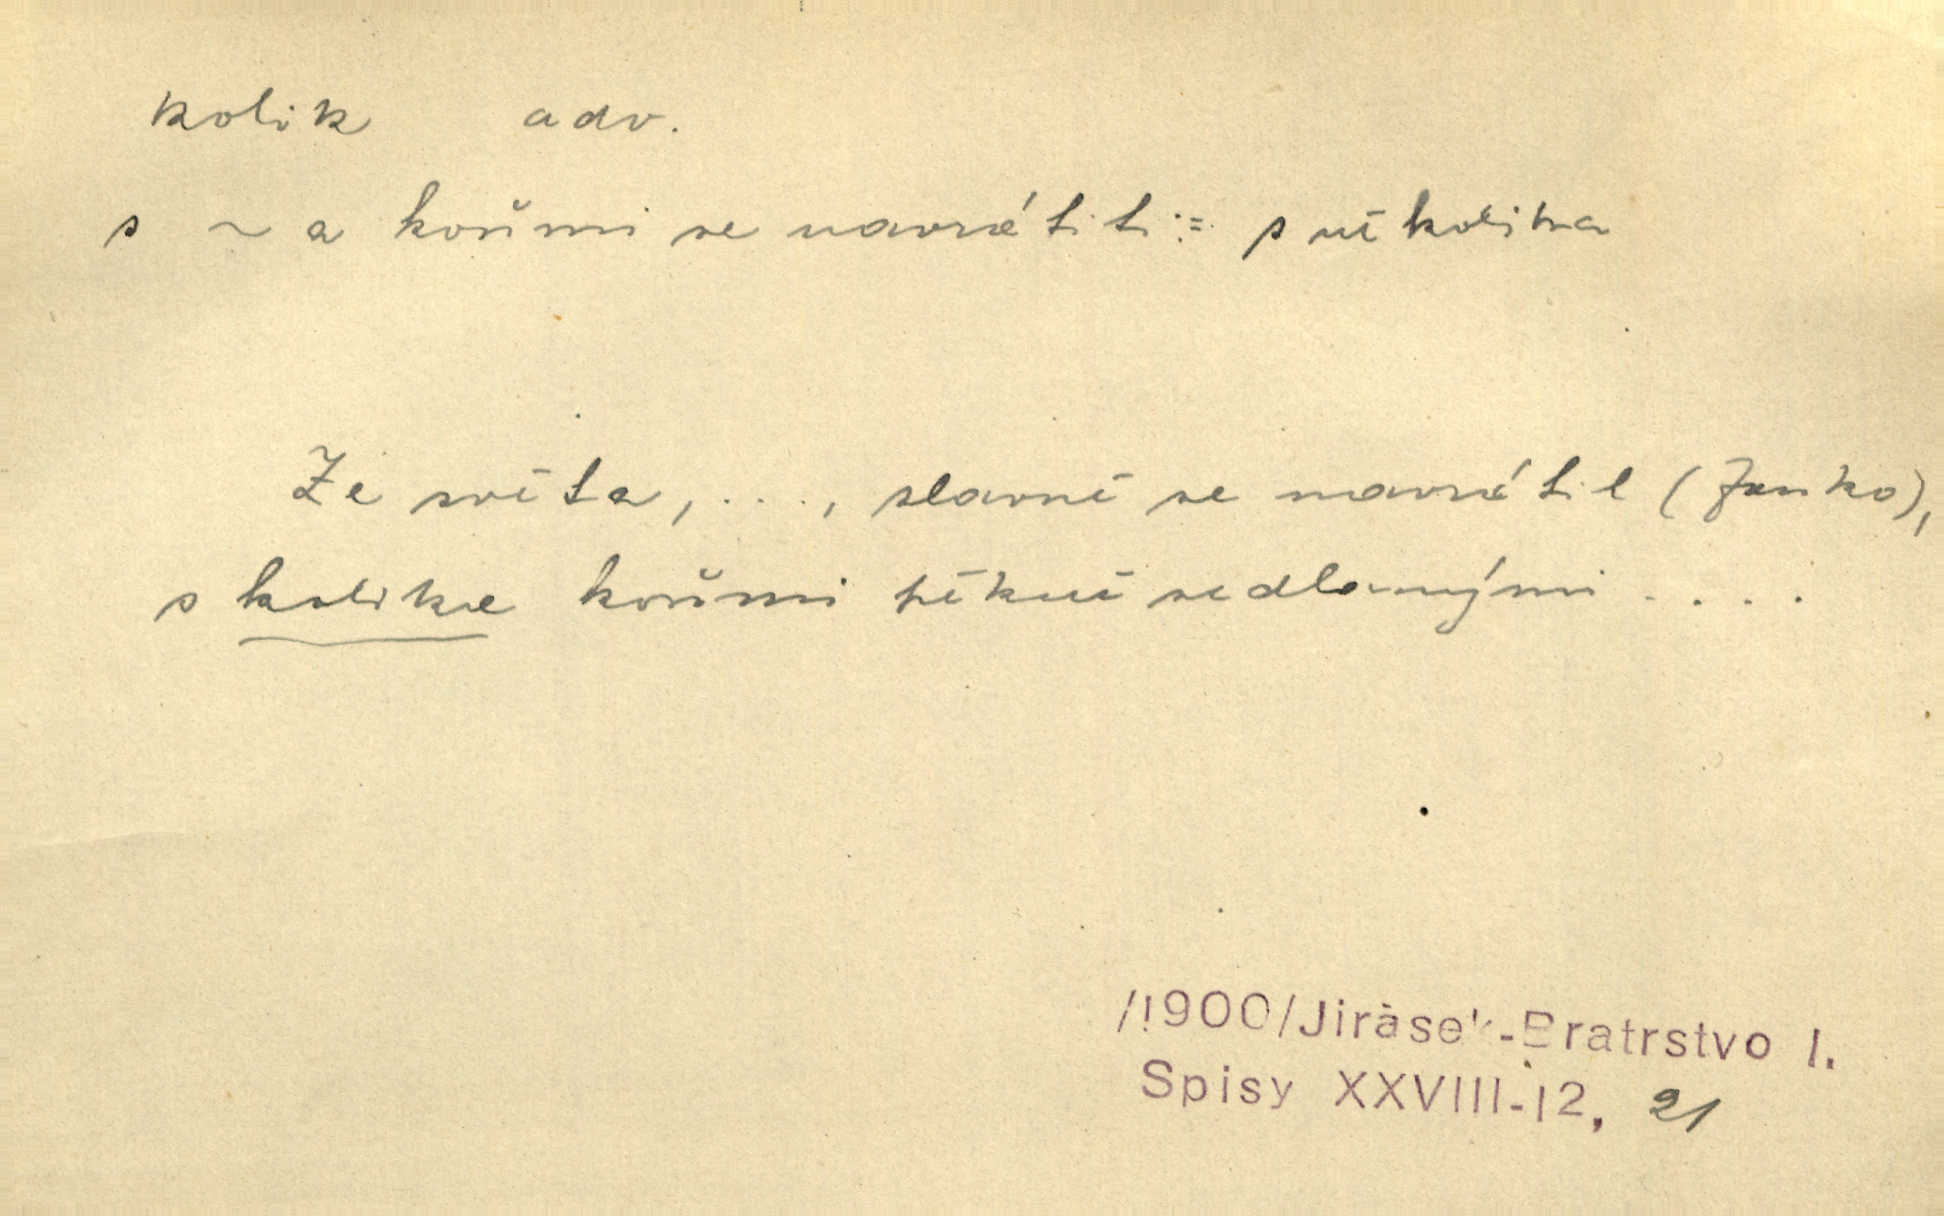 kolik adv.
s ~ a koňmi se navrátiti := s několika
Ze světa, ..., slavně se navrátil (Janko),
s kolika koňmi pěkně sedlanými ....
/1900/Jirásek-Bratrstvo I.
Spisy XXVIII-12, 21